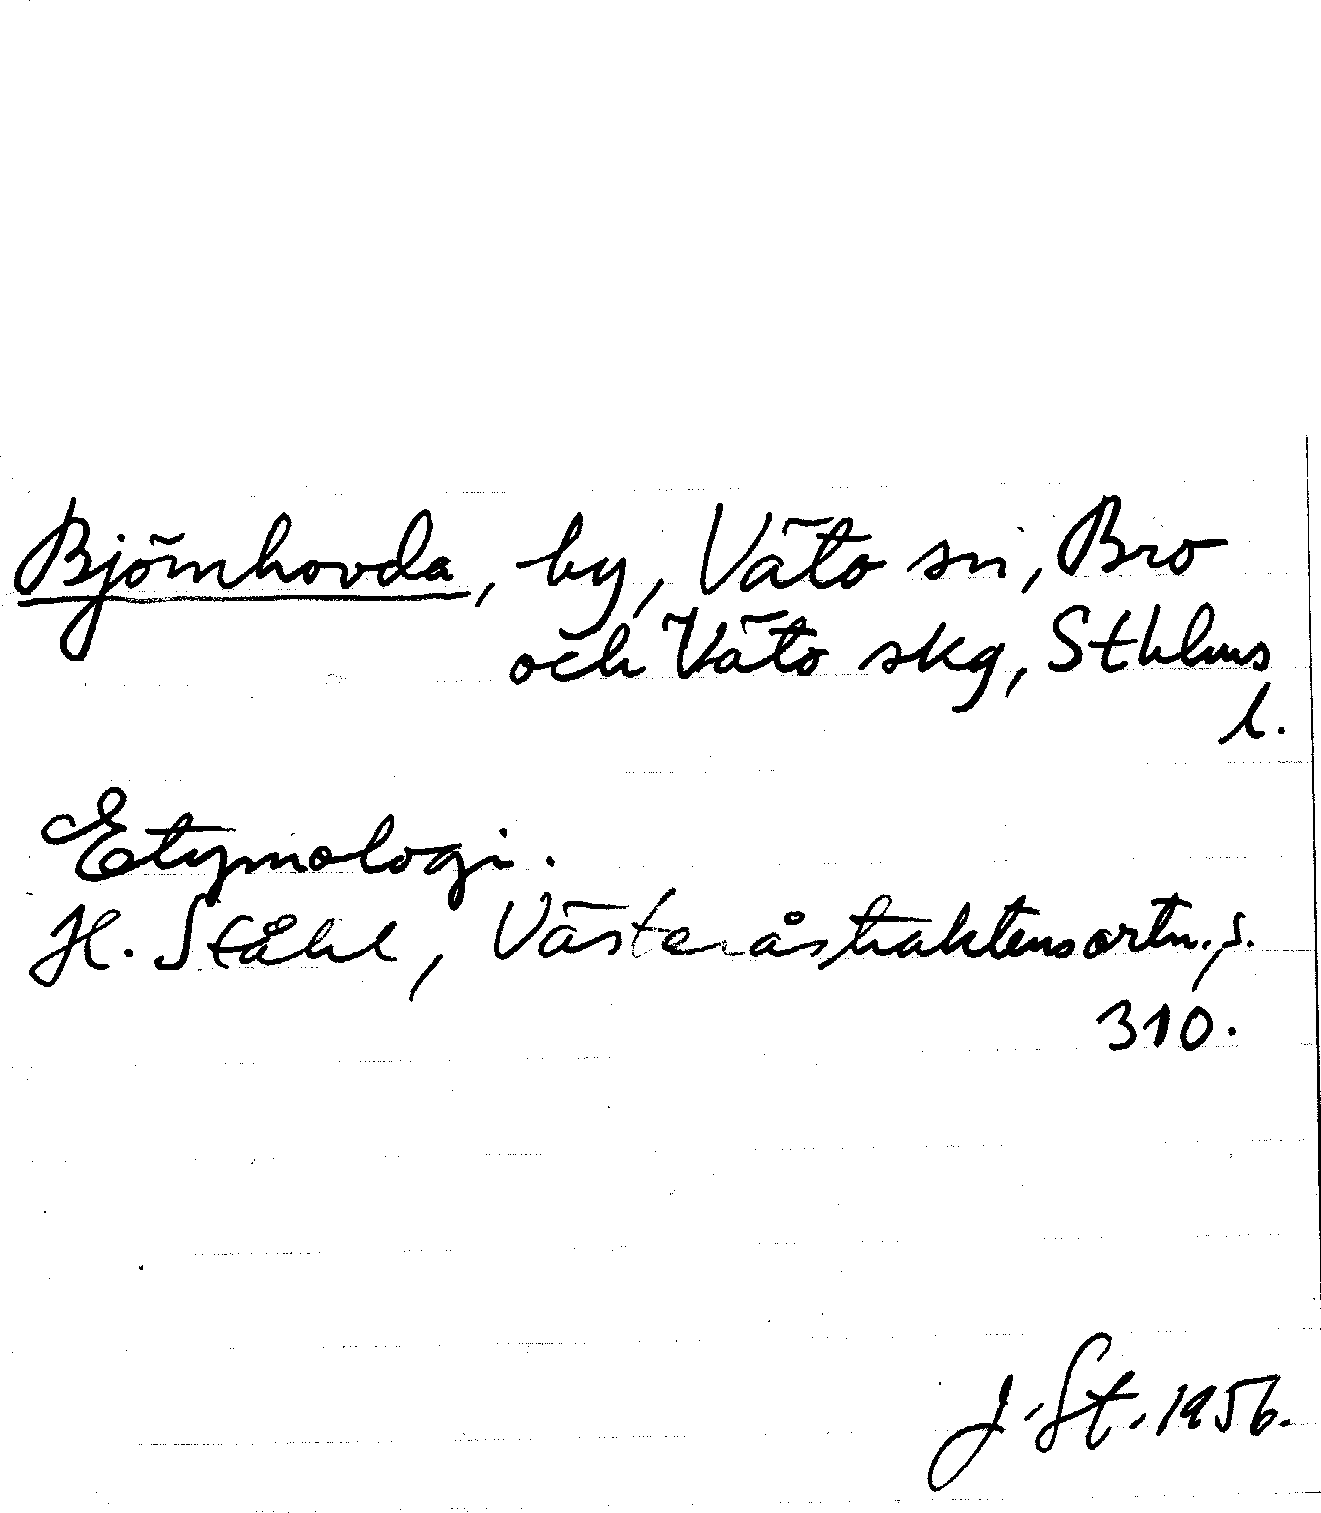 Björnhovda, by, Vätö sn, Bro
och Vätö skg, Sthlms
l.
Etymologi.
H. Ståhl, Västeråstraktens ortn., s.
310.
J. St. 1956.